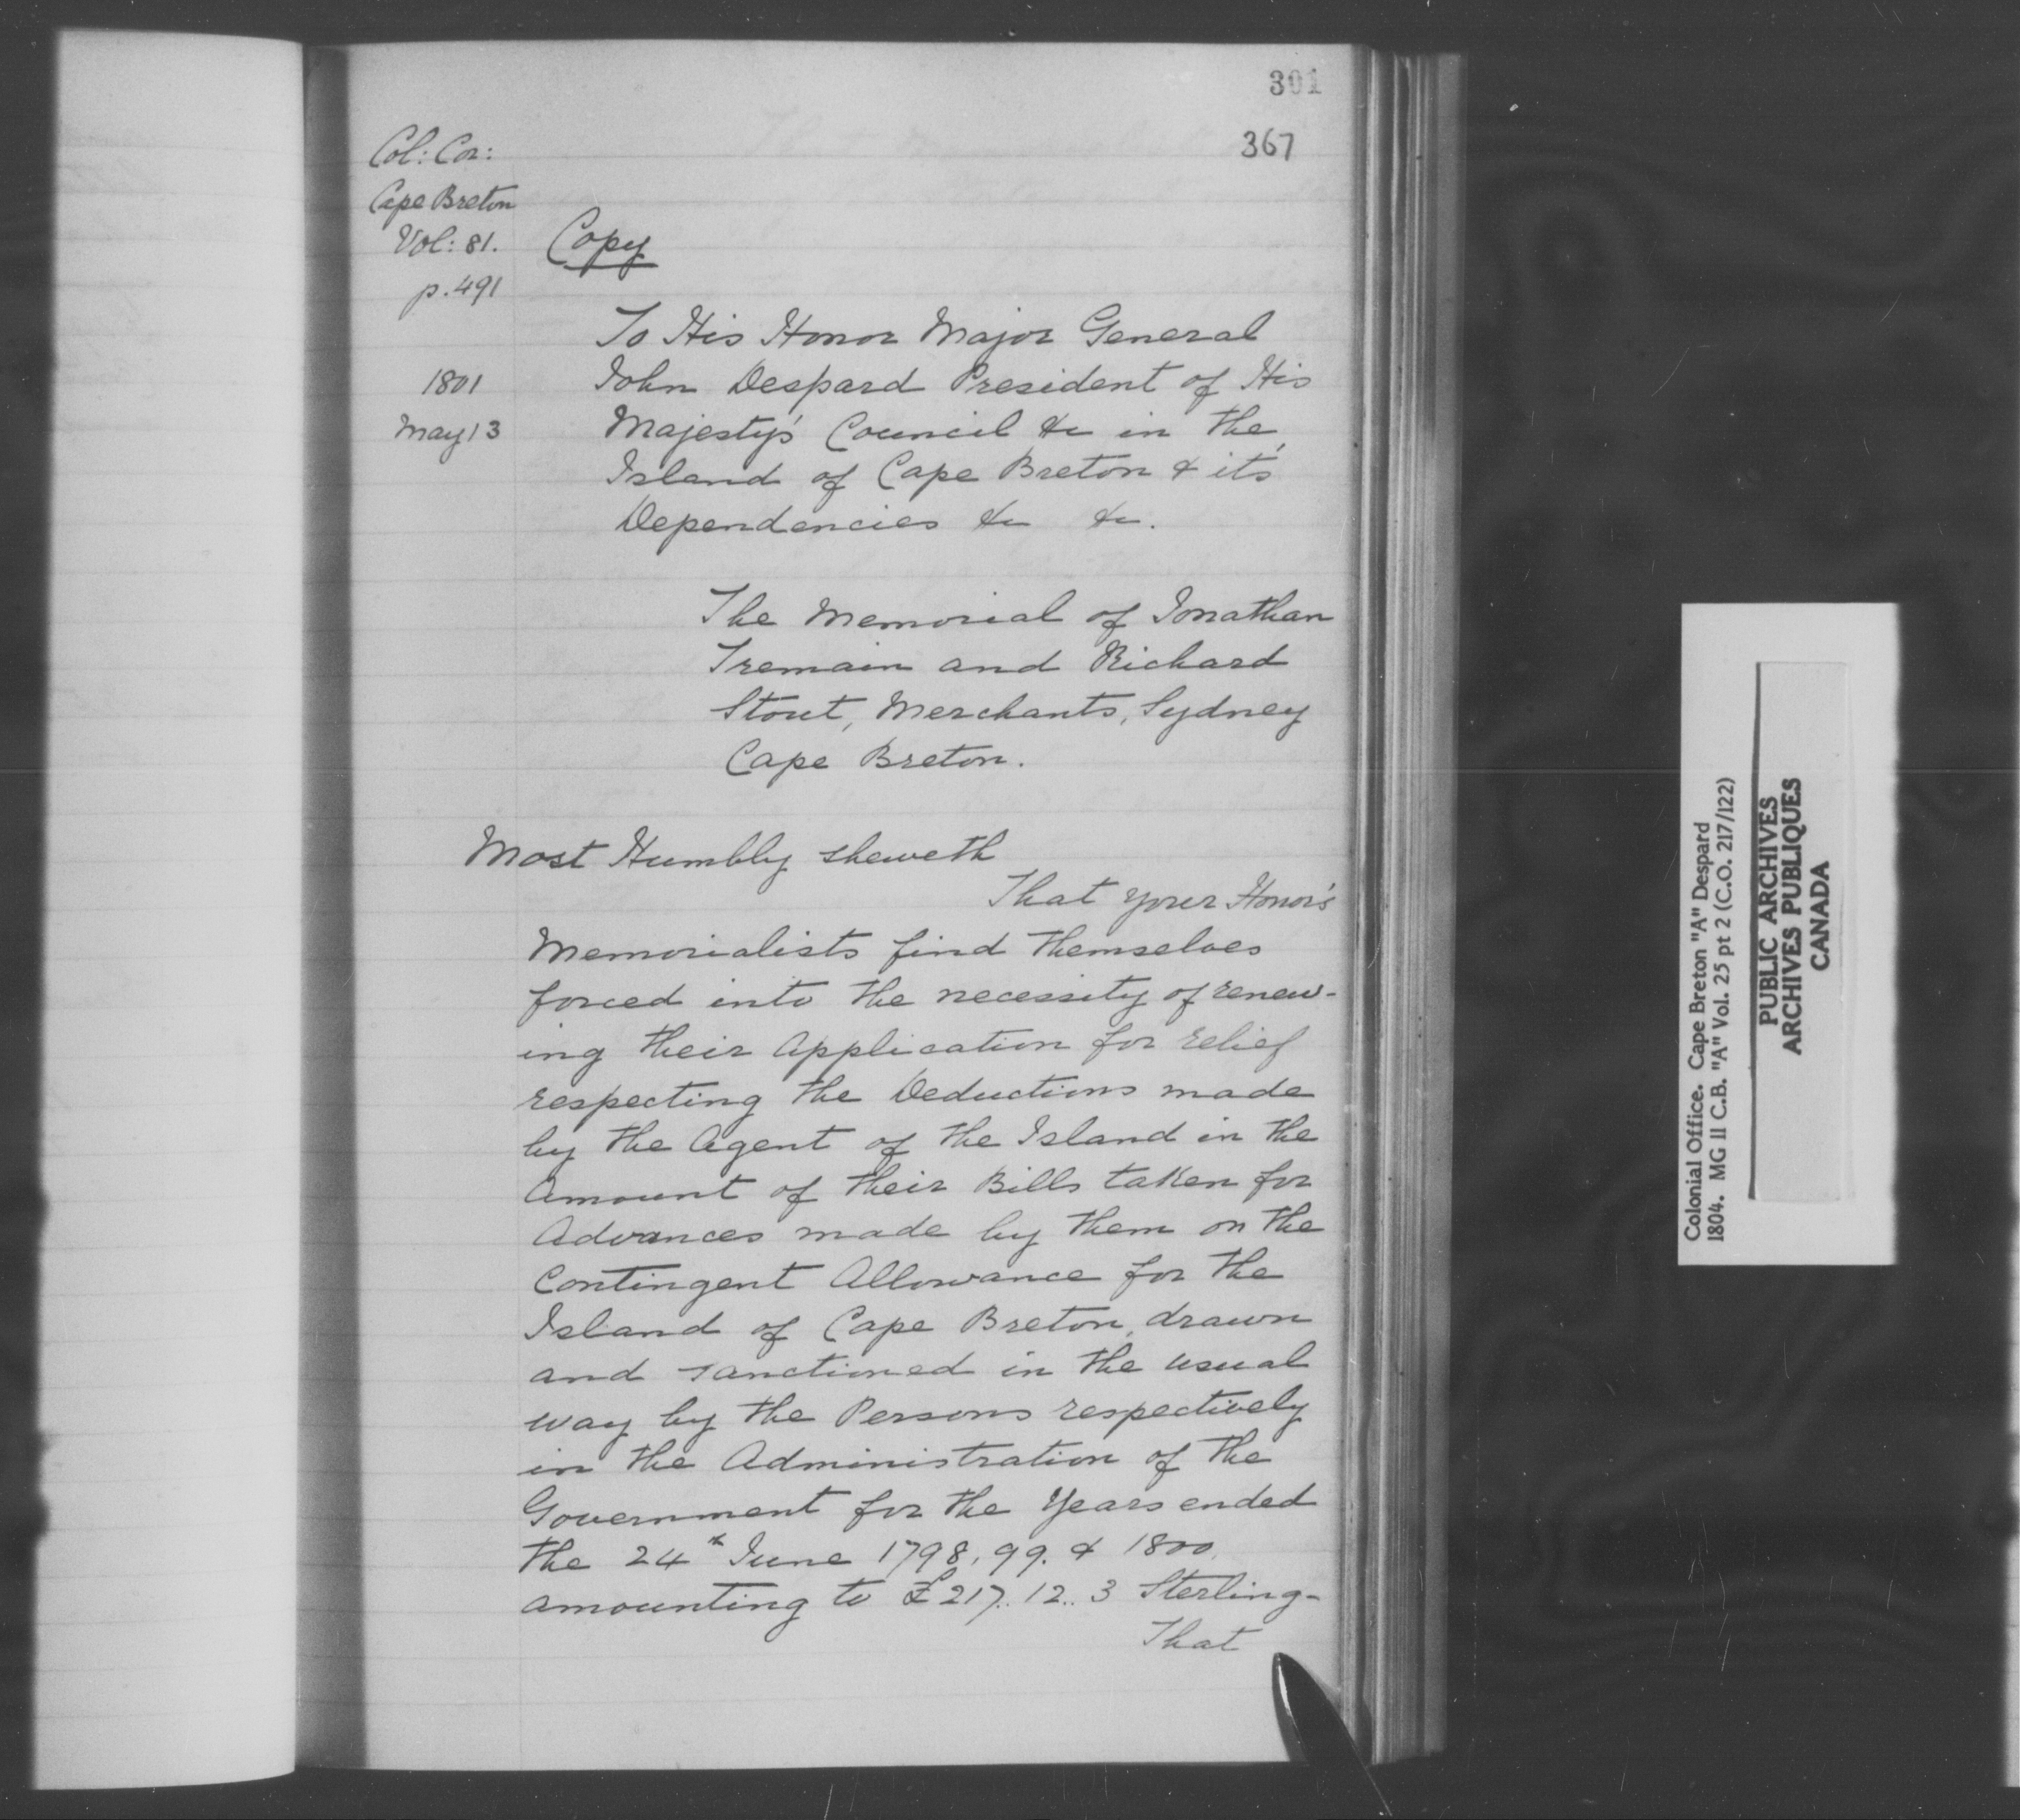 301
367
Col: Cor:
Cape Breton
Vol: 81.
p. 491
1801
May 13
Copy
To His Honor Major General
John Despard President of His
Majesty's Council &c in the
Island of Cape Breton & it's
Dependencies &c &c.
The Memorial of Jonathan
Tremain and Richard
Stout, Merchants, Sydney
Cape Breton.
Most Humbly sheweth
That your Honor's
Memorialists find themselves
forced into the necessity of renew-
ing their Application for relief
respecting the Deductions made
by the Agent of the Island in the
Amount of their Bills taken for
Advances made by them on the
Contingent Allowance for the
Island of Cape Breton, drawn
and sanctioned in the usual
way by the Persons respectively
in the Administration of the
Government for the Years ended
the 24th June 1798, 99. & 1800.
amounting to £217..12..3 Sterling-
That
Colonial Office. Cape Breton "A" Despard
1804. MG 11 C.B. "A" Vol. 25 pt 2 (C.O. 217/122)
PUBLIC ARCHIVES
ARCHIVES PUBLIQUES
CANADA